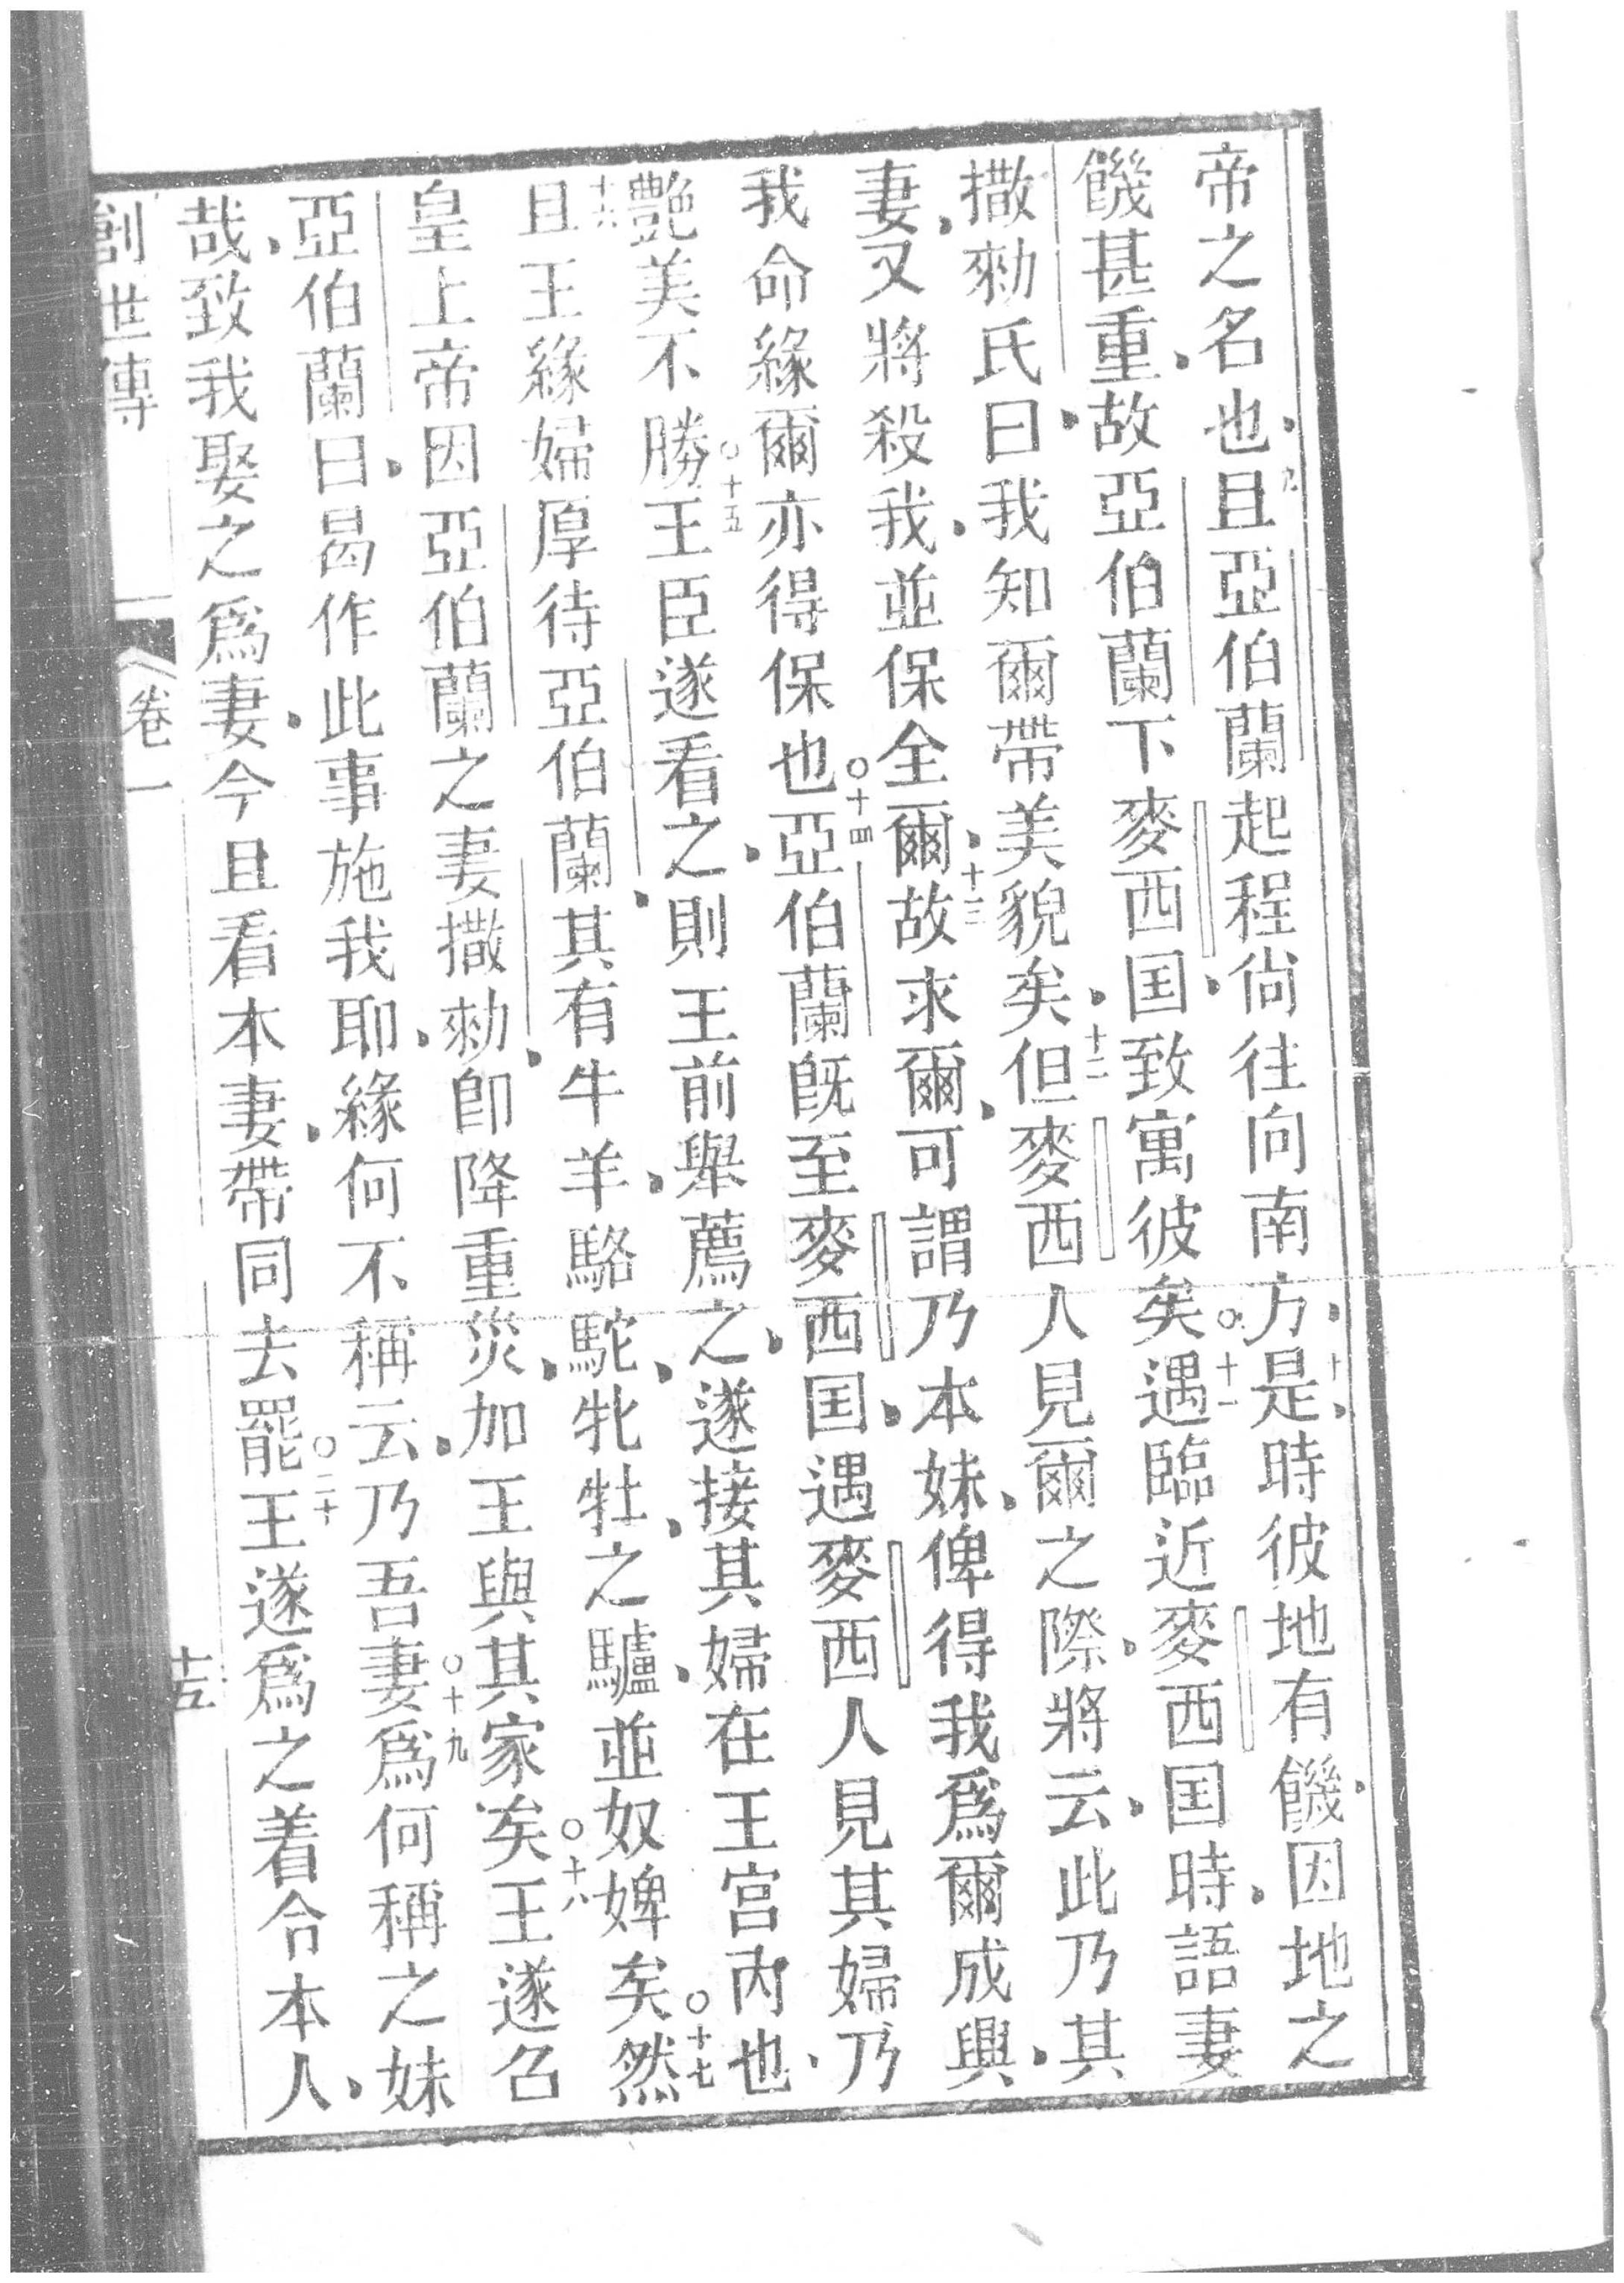 帝之名也、九且亞伯蘭起程尙往向南方、十是、時彼地有饑、因地之
饑甚重、故亞伯蘭下麥西国、致寓彼矣○十一遇臨近麥西国時、語妻
撒勑氏曰、我知爾帶美貌矣、十二但麥西人見爾之際、將云、此乃其
妻、又將殺我、並保全爾、十三故求爾、可謂乃本妹、俾得我爲爾成興、
我命緣爾亦得保也○十四亞伯蘭旣至麥西国、遇麥西人見其婦、乃
艷美不勝○十五王臣遂看之、則王前舉薦之、遂接其婦在王宮內也、
十六且王緣婦厚待亞伯蘭、其有牛羊、駱駝、牝牡、之驢、並奴婢矣○十七然
皇上帝因亞伯蘭之妻撒勑、卽降重災、加王與其家矣○十八王遂召
亞伯蘭曰、曷作此事施我耶、緣何不稱云、乃吾妻○十九爲何稱之妹
哉、致我娶之爲妻、今且看本妻、帶同去罷○二十王遂爲之着令本人、
創世傳 卷一 十五